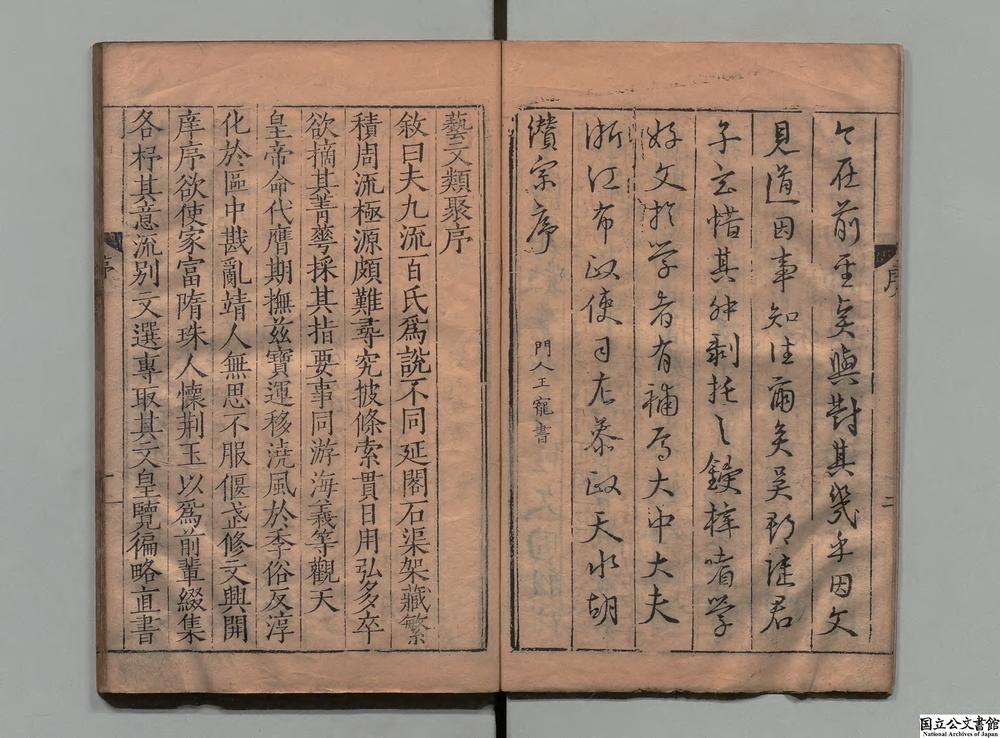 在前至矣與對其幾乎因文
見道因事知往爾矣吴郡陸君
子玄惜其殘剥托之鋟梓嗜学
好文於学者有補焉大中大夫
浙江布政使司左叅政天水胡
纘宗序 門人王寵書
序 二
藝文類聚序
敘曰夫九流百氏爲說不同延閣石渠架藏繁
積周流極源頗難尋究披條索貫日用弘多卒
欲摘其菁華採其指要事同游海義等觀天
皇帝命代膺期撫兹寶運移澆風於季俗反淳
化於區中戡亂靖人無思不服偃武修文興開
庠序欲使家富隋珠人懷荆玉以爲前輩綴集
各杼其意流别文選專取其文皇覽徧略直書
序 一
国立公文書館
National Archives of Japan